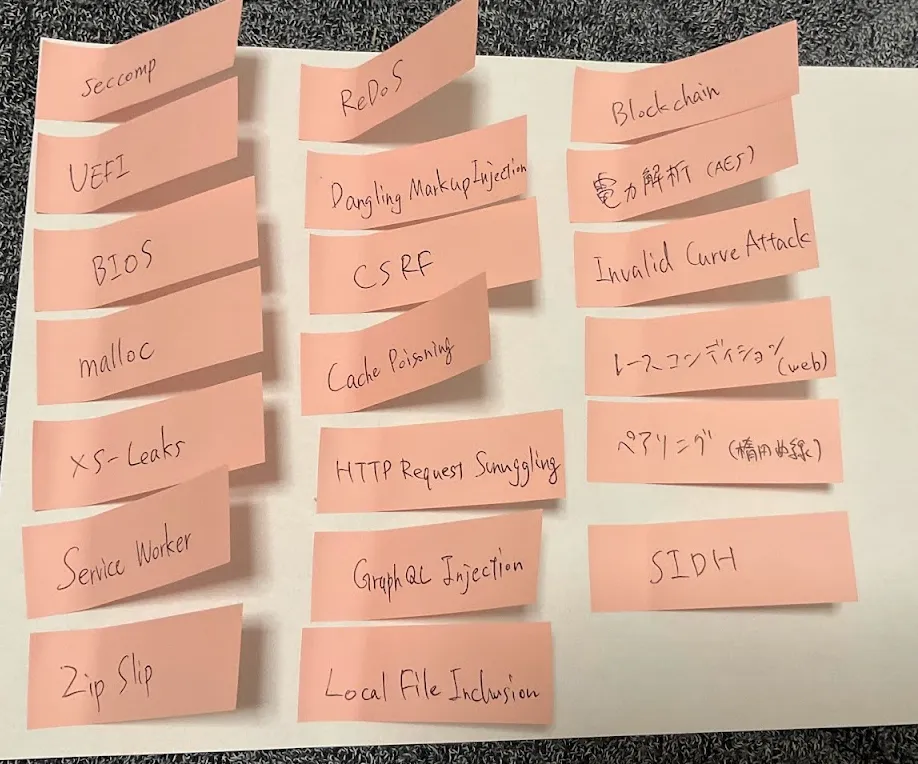 seccomp
UEFI
BIOS
malloc
XS-Leaks
Service Worker
Zip Slip
ReDoS
Dangling Markup Injection
CSRF
Cache Poisoning
HTTP Request Smuggling
GraphQL Injection
Local File Inclusion
Blockchain
電力解析 (AES)
Invalid Curve Attack
レースコンディション
(web)
ペアリング (楕円曲線)
SIDH